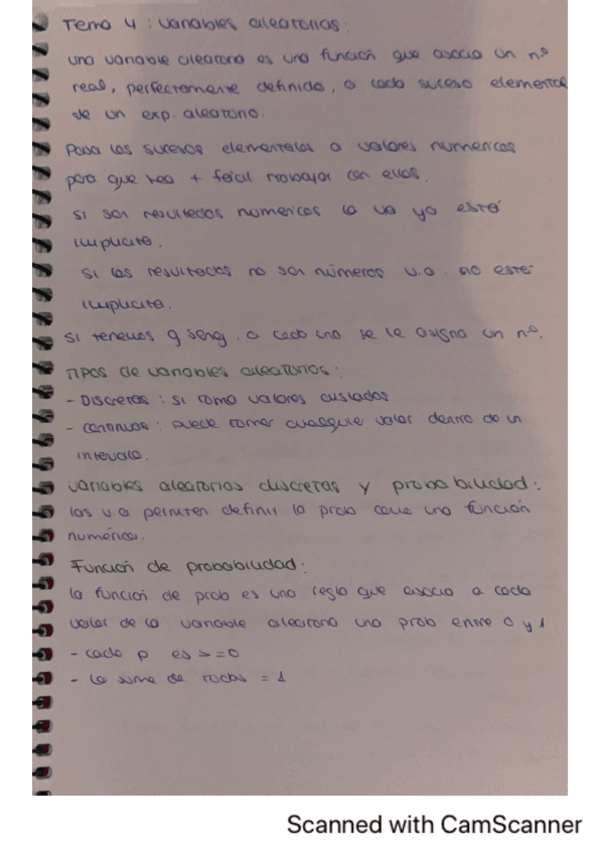 Tema 4: variables aleatorias:
una variable aleatoria es una función que asocia un nº
real, perfectamente definido, a cada suceso elemental
de un exp. aleatorio.
Pasa los sucesos elementales a valores numericos
para que sea + facil trabajar con ellos.
si son resultados numericos la va ya está
implicita.
si los resultados no son números v.a. no está
implicita.
si tenemos q , a cada uno se le asigna un nº.
Tipos de variables aleatorias:
- Discretas: si toma valores aislados
- continuas: puede tomar cualquier valor dentro de un
intervalo.
variables aleatorias discretas y probabilidad:
las v.a permiten definir la prob como una función
numérica.
Función de probabilidad:
la función de prob es una regla que asocia a cada
valor de la variable aleatoria una prob entre 0 y 1
- cada p es >=0
- la suma de todas = 1
Scanned with CamScanner